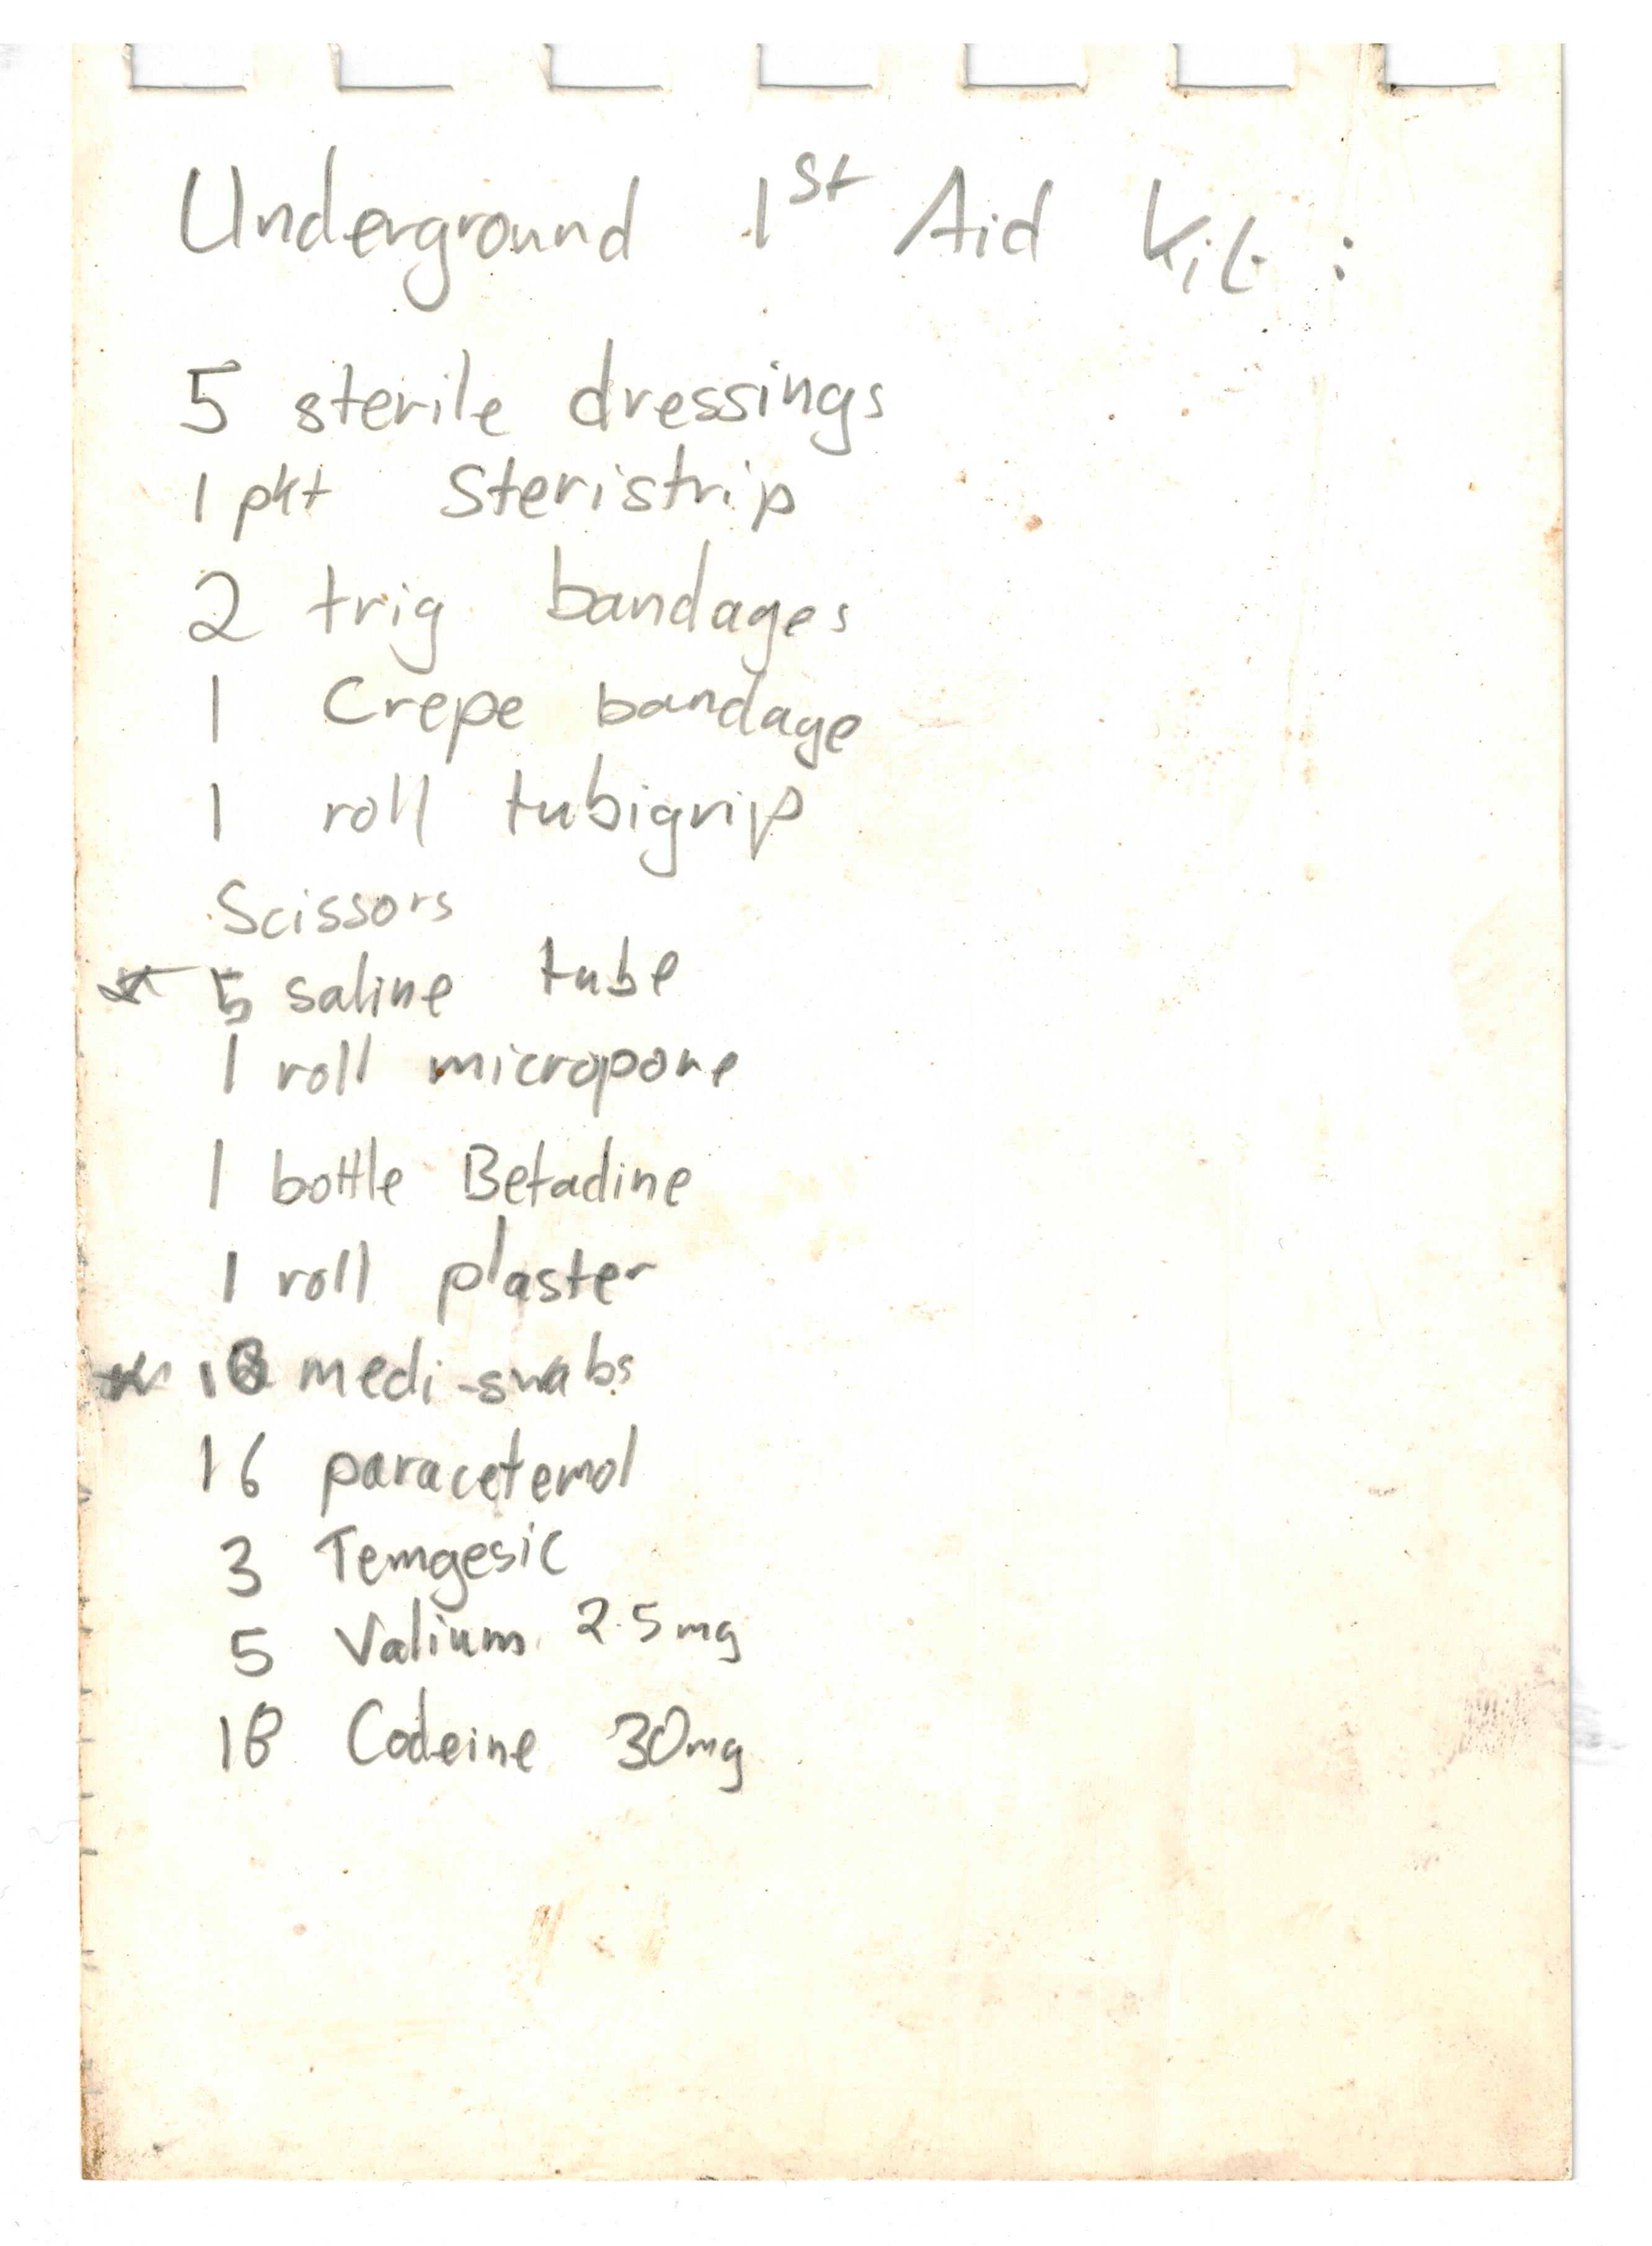 Underground 1st Aid Kit :
5 sterile dressings
1 pkt Steristrip
2 trig bandages
1 Crepe bandage
1 roll tubigrip
Scissors
* 5 saline tube
1 roll micropore
1 bottle Betadine
1 roll plaster
* medi-swabs
16 paracetemol
3 Temgesic
5 Valium 2.5mg
18 Codeine 30mg